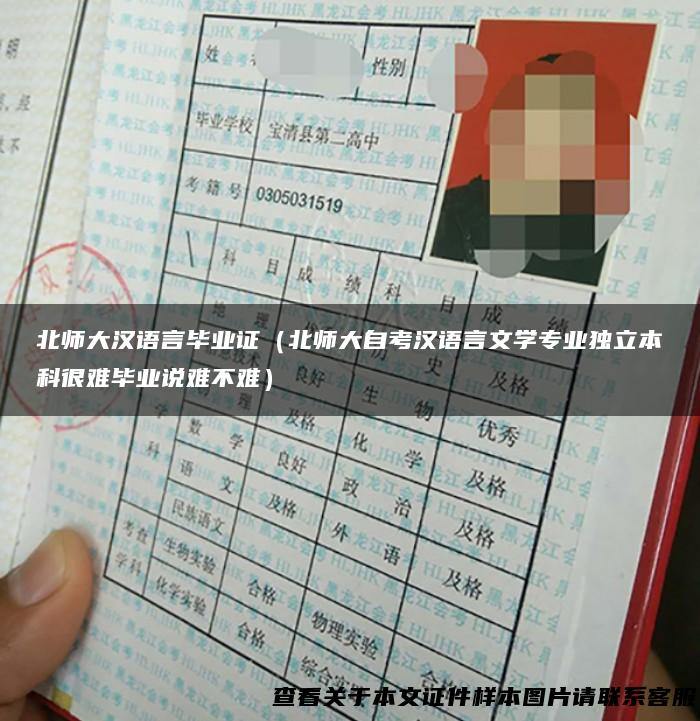 明
经
不
姓
性别
毕业学校 宝清县第二高中
考籍号 0305031519
科目 成绩 科目 成绩
北师大汉语言毕业证（北师大自考汉语言文学专业独立本
科很难毕业说难不难）
良好 生物 优秀
物理 及格 化学 及格
数学 良好 政治 及格
语文 及格 外语 及格
民族语文
考查 生物实验 合格 物理实验 合格
学科 化学实验 合格 综合实
查看关于本文证件样本图片请联系客服